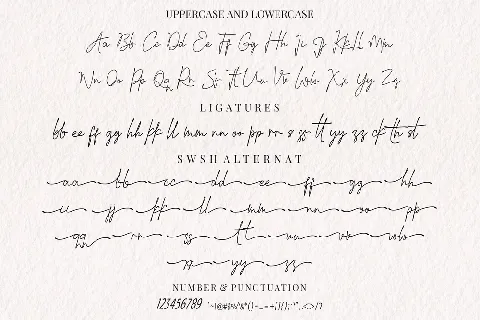 UPPERCASE AND LOWERCASE
Aa Bb Cc Dd Ee Ff Gg Hh Ii Jj Kk Ll Mm
Nn Oo Pp Qq Rr Ss Tt Uu Vv Ww Xx Yy Zz
LIGATURES
bb ee ff gg hh kk ll mm nn oo pp rr s ss tt yy zz ck th st
SWSH ALTERNAT
aa bb cc dd ee ff gg hh
ii jj kk ll mm nn oo pp
qq rr ss tt uu vv ww
xx yy zz
NUMBER & PUNCTUATION
123456789